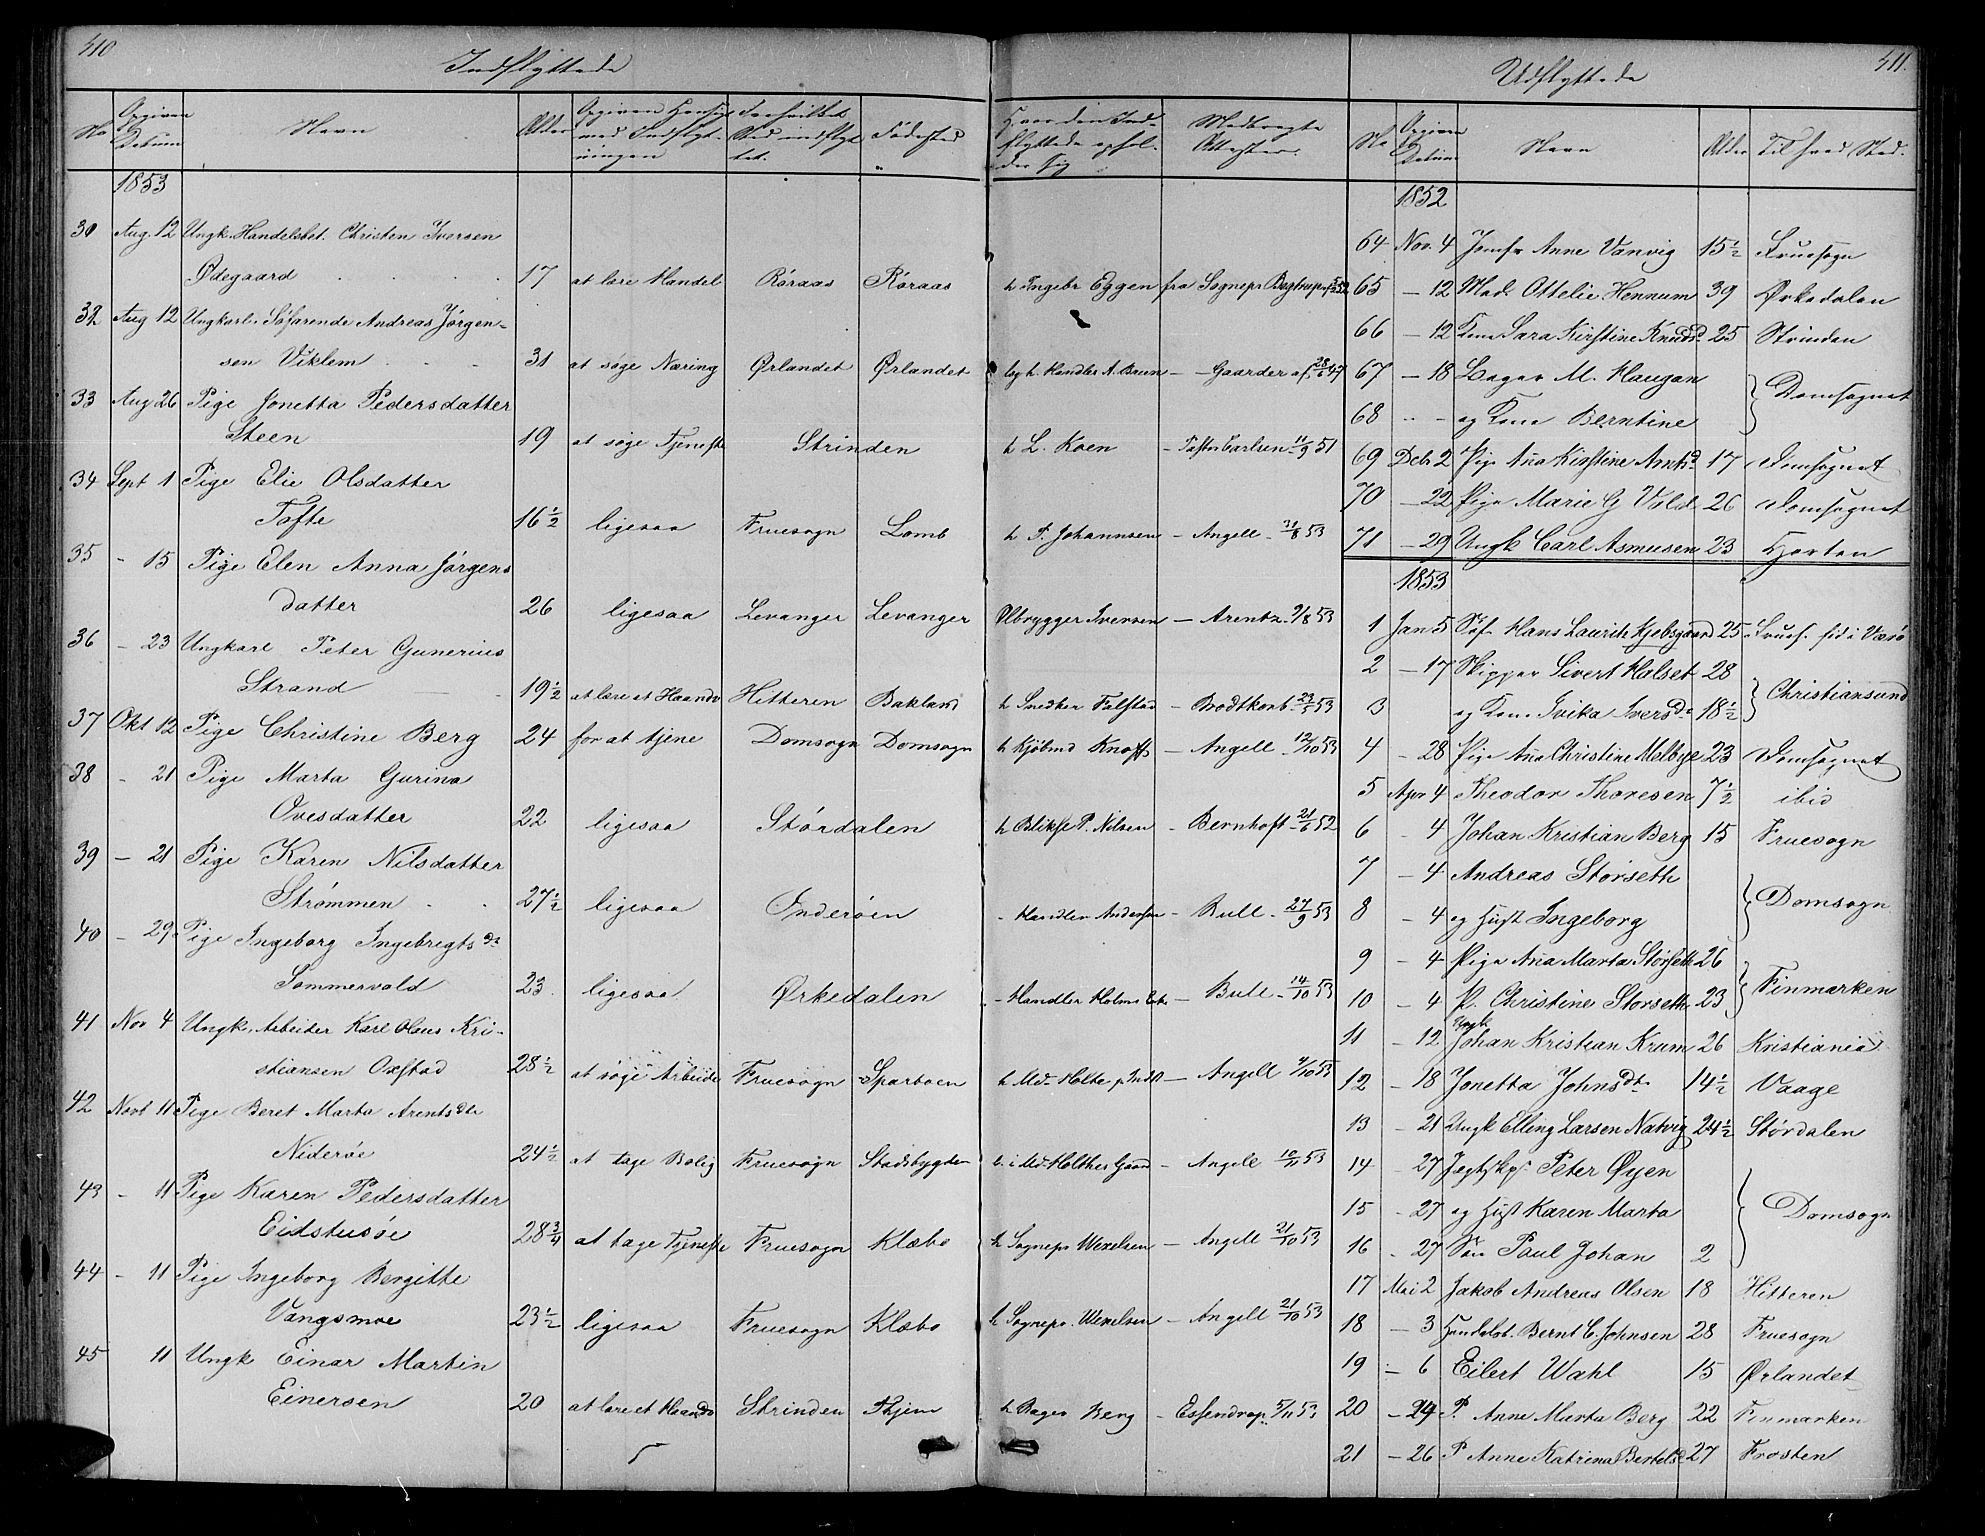 410
Indflyttede
No
Opgiven
Datum
Navn
Alder
Opgiven Hensigt
med Indflyt-
ningen
Fra hvilket
Sted indflyt
tet.
Fødested
Hvor den Ind-
flyttede ophol-
der sig
Medbragte
Attester.
1853
30 Aug. 12 Ungk. Handelsbet. Christen Iversen
Ødegaard 17 at lære Handel Röraas Röraas h Ingebr Eggen fra Sognepr Bogtrup
32 Aug 12 Ungkarl. Søfarende Andreas Jørgen-
sen Viklem 31 at søge Næring Ørlandet Ørlandet h. Handler A. Brun — Gaarder af 28/6 47
33 Aug 26 Pige Jonetta Pedersdatter
Steen 19 at søge Tjeneste Strinden h L. Koen — Pastor Carlsen 11/9 51
34 Sept 1 Pige Elie Olsdatter
Tofte 16½ ligesaa Fruesogn Lomb h P. Johannsen — Angell 31/8 53
35 - 15 Pige Elen Anna Jørgens
datter 26 ligesaa Levanger Levanger Ølbrygger Iversen — Arentz 9/8 53
36 - 23 Ungkarl Peter Gunerius
Strand 19½ at lære et Haandv Hitteren Bakland h Snedker Falstad — Brodtkorb 23/5 53
37 Okt 12 Pige Christine Berg 24 for at tjene Domsogn Domsogn h Kjöbmd Knoff — Angell 12/10 53
38 - 21 Pige Marta Gurina
Ovesdatter 22 ligesaa Stördalen h Bliksl P. Nilsen — Bernhoft 21/6 52
39 — 21 Pige Karen Nilsdatter
Strømmen 27½ ligesaa Inderøen - Handler Andersen — Bull 27/9 53
40 - 29 Pige Ingeborg Ingebregtsdr
Sommervold 23 ligesaa Ørkedalen - Handler Holms Enke — Bull 14/10 53
41 Nov 4 Ungk. Arbeider Karl Olaus Kri-
stiansen Oxstad 28½ at söge Arbeide Fruesogn Sparboen h Md. Holte — Angell 4/10 53
42 Novb 11 Pige Beret Marta Arentsdtr
Niderøe 24½ at tage Bolig Fruesogn Stadsbygden i Md. Holthes Gaard — Angell 10/11 53
43 - 11 Pige Karen Pedersdatter
Eidstusöe 28¾ at tage Tjeneste Fruesogn Klæbo h Sognepr Wexelsen — Angell 21/10 53
44 - 11 Pige Ingeborg Bergitte
Vangsmoe 23½ ligesaa Fruesogn Klæbo h Sognepr. Wexelsen — Angell 21/10 53
45 11 Ungk Einar Martin
Einersen 20 at lære et Haandv Strinden Thjem h Bager Berg — Essendrop 5/11 53
411.
Udflyttede
No
Opgiven
Datum
Navn
Alder
Til hvad Sted.
1852
64 Nov. 4 Jomfr Anne Vanvig 15½ Fruesogn
65 — 12 Mad. Ottelie Hennum 39 Ørkedalen
66 — 12 Kone Sara Kirstine Knudsd. 25 Strinden
67 — 18 Bager M. Haugan
Domsognet
68 - - og Kone Berntine
69 Debr 2 Pige Ana Kirstine Arntsd 17 Domsognet
70 — 22 Pige Marie G Vold 26 Domsognet
71 — 29 Ungk Carl Asmusen 23 Horten
1853
1 Jan 5 Söf Hans Laurits Kjobsgaard 25 Frues.
2 — 17 Skipper Sivert Halset 28
Christiansund
3 og Kone Gvika Iversd. 18½
4 - 28 Pige Ana Christine Melbye 23 Domsognet
5 Apr 4 Theodor Thoresen 7½ ibid
6 - 4 Johan Kristian Berg 15 Fruesogn
7 — 4 Andreas Storseth
Domsogn
8 - 4 og Hust Ingeborg
9 - 4 Pige Ana Marta Störseth 26
Finmarken
10 - 4 P. Christine Storseth 23
11 - 12 Ungk Johan Kristian Krum 26 Kristiania
12 - 18 Jonetta Johnsdt. 14½ Vaage
13 - 21 Ungk Elling Larsen Natvig 24½ Stördalen
14 - 27 Jægtskpr Peter Øyen
15 - 27 og Hust Karen Marta
Domsogn
16 - 27 Sön Paul Johan 2
17 Mai 2 Jakob Andreas Olsen 18 Hitteren
18 - 3 Handelsb. Bernt C. Johnsen 28 Fruesogn
19 — 6 Eilert Wahl 15 Ørlandet
20 — 24 P. Anne Marta Berg 22 Finmarken
21 — 26 P Anne Katrina Bertelsd 27 Frosten